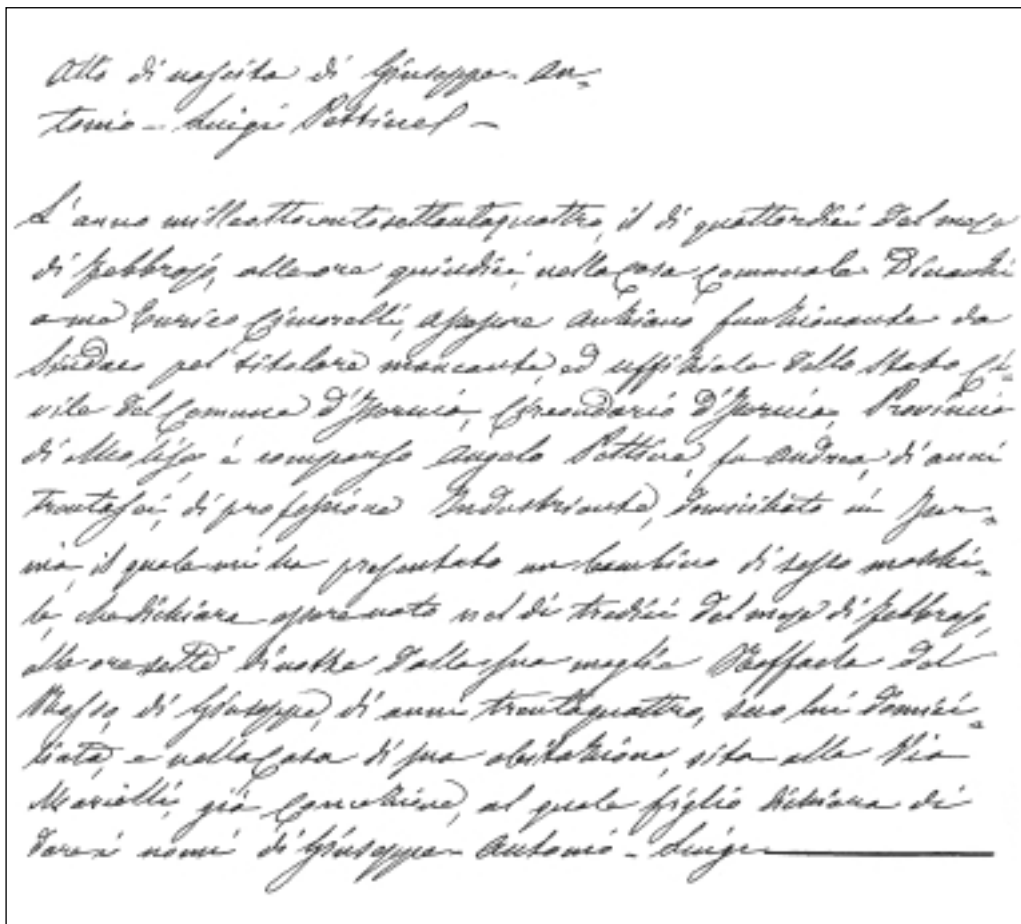 Atto di nascita di Giuseppe - An-
tonio - Luigi Pettine -
L'anno milleottocentosettantaquattro, il dì quattordici del mese
di febbrajo, alle ore quindici, nella casa Comunale Dinanzi
a me Enrico Cimorelli, assessore anziano funzionante da
Sindaco pel titolare mancante, ed uffiziale dello Stato Ci-
vile del Comune d'Isernia, Circondario d'Isernia, Provincia
di Molise, è comparso Angelo Pettine, fu Andrea, di anni
trentasei, di professione Industriante, domiciliato in Iser-
nia, il quale mi ha presentato un bambino di sesso maschi-
le, che dichiara essere nato nel dì tredici del mese di febbrajo,
alle ore sette di notte dalla sua moglie Raffaela Del
Basso, di Giuseppe, di anni trentaquattro, seco lui domici-
liata, e nella casa di sua abitazione, sita alla Via
Marielli, già Concezione, al quale figlio dichiara di
dare i nomi di Giuseppe - Antonio - Luigi